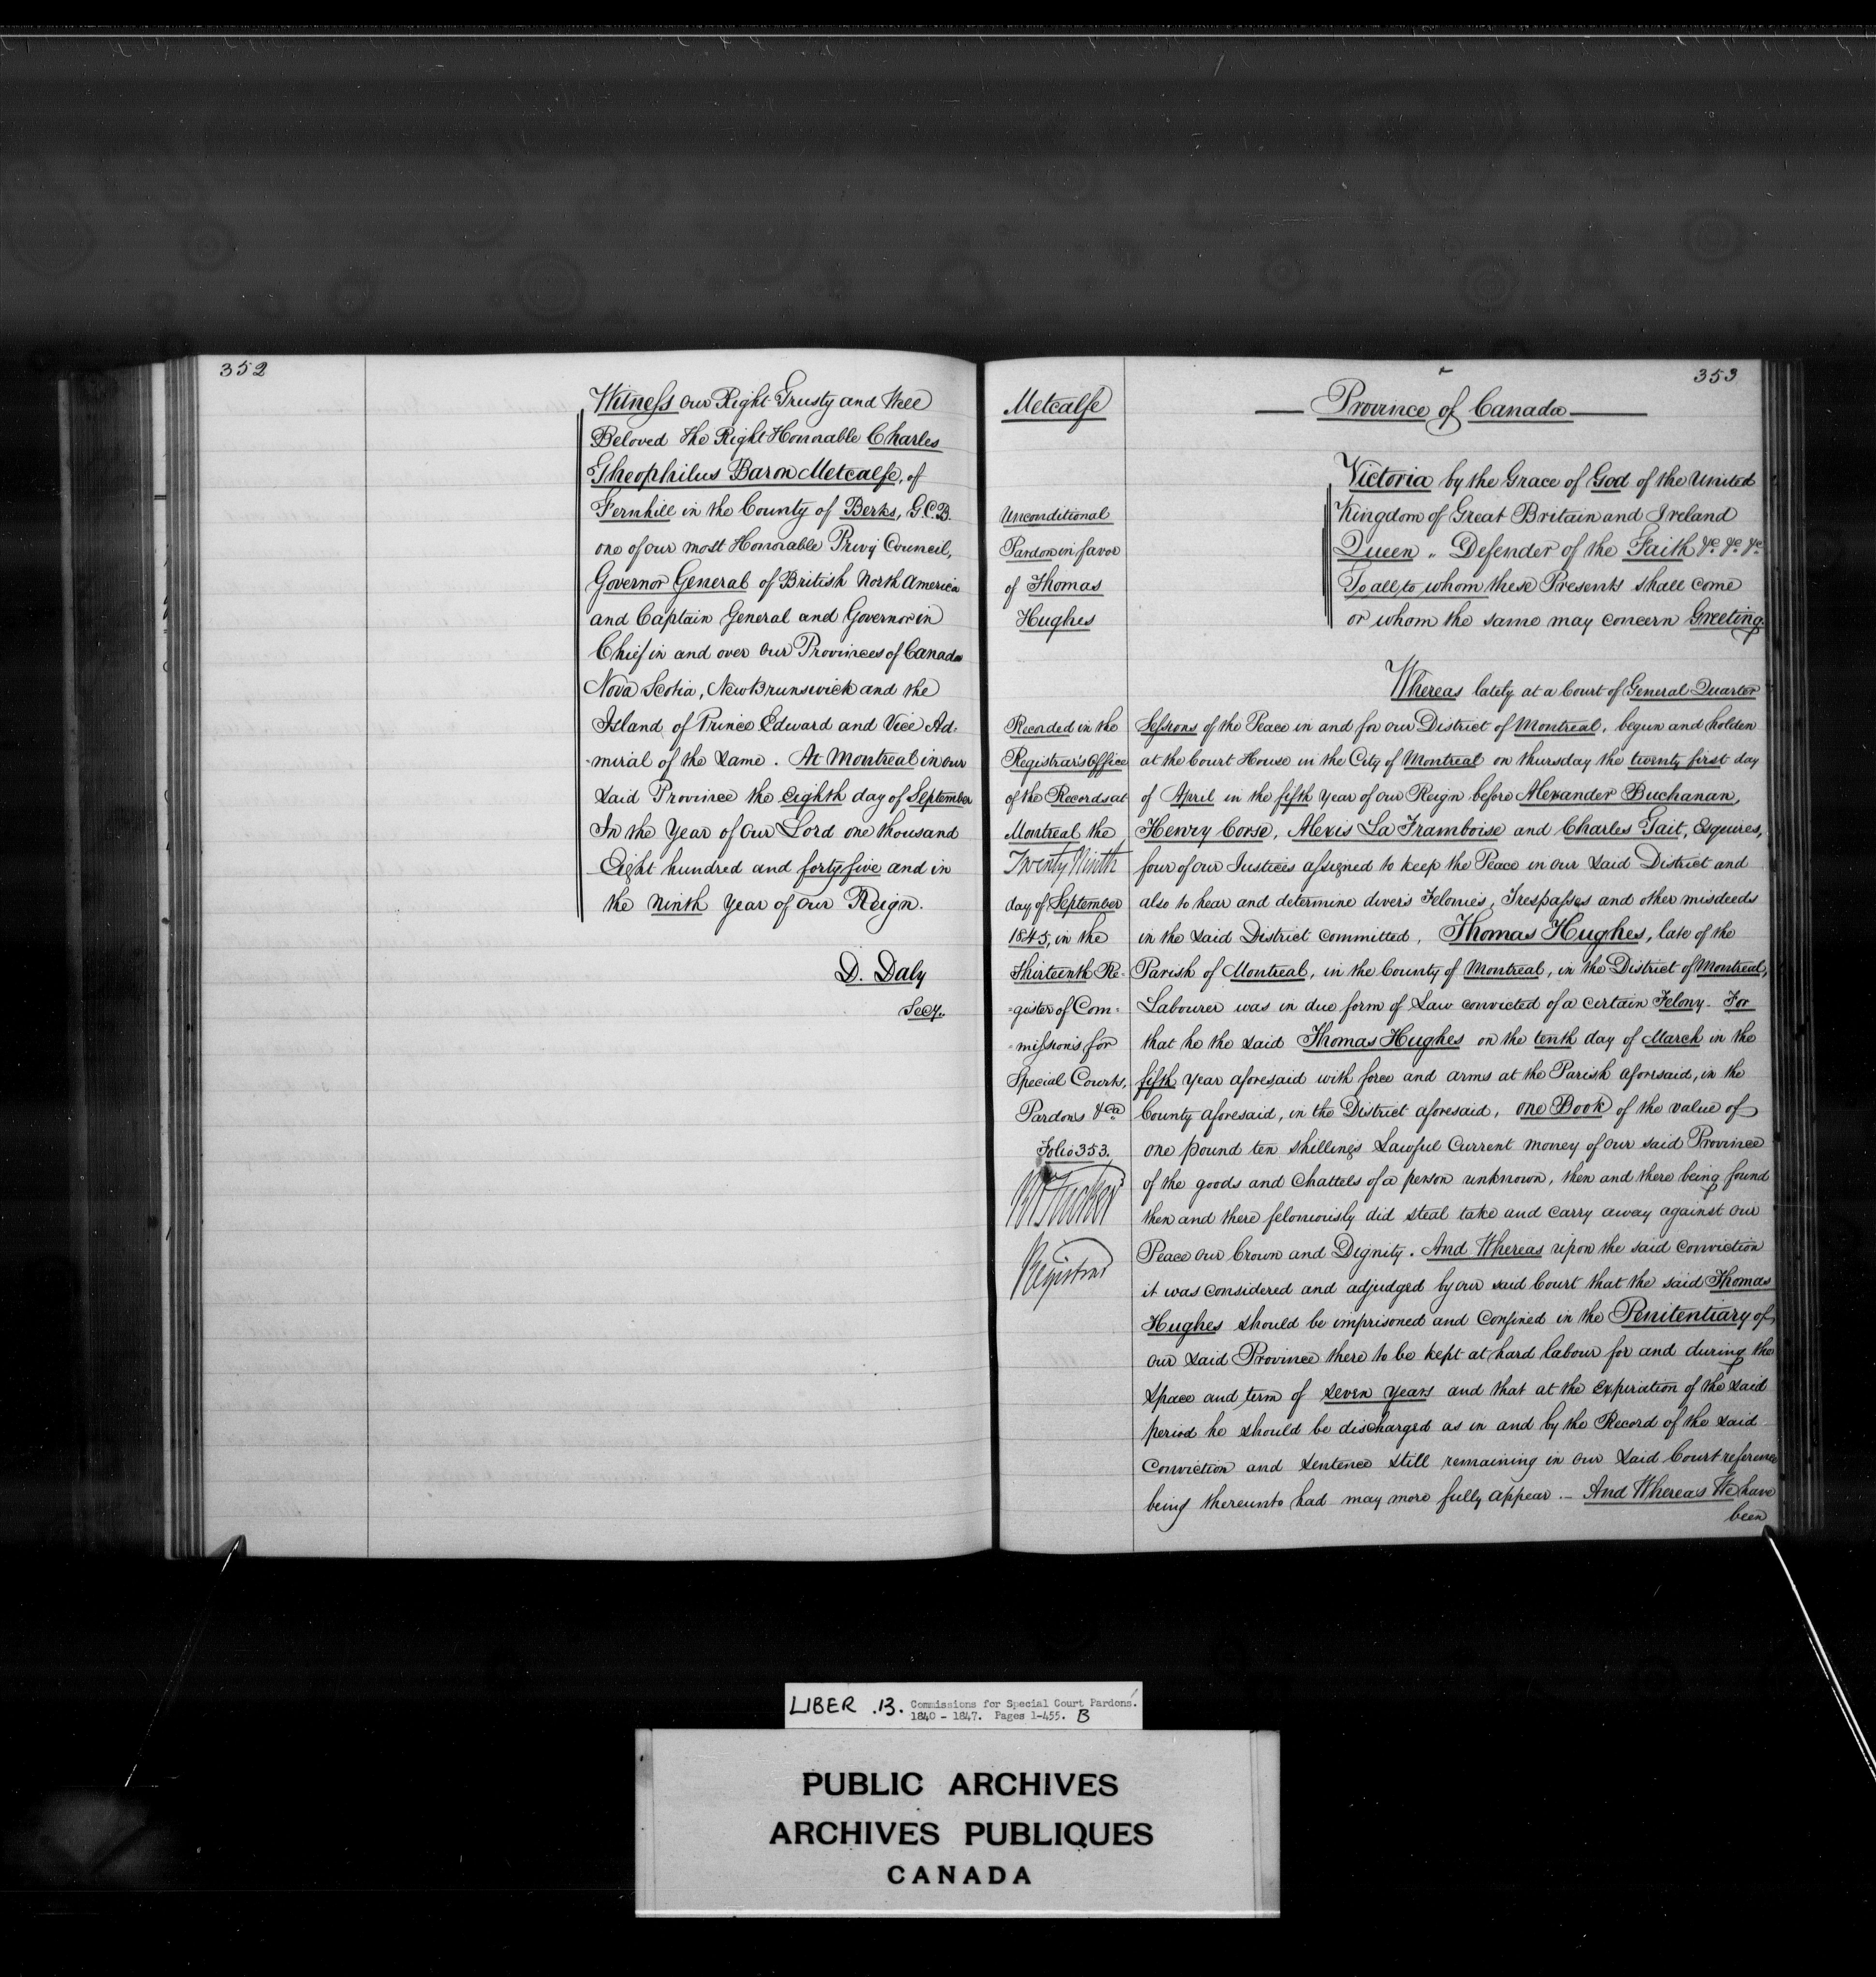 352
Witness our Right Trusty and Well
Beloved the Right Honorable Charles
Theophilus Baron Metcalfe, of
Fernhill in the County of Berks, G.C.B.
one of our most Honorable Privy Council,
Governor General of British North America
and Captain General and Governor in
Chief in and over our Provinces of Canada
Nova Scotia, New Brunswick and the
Island of Prince Edward and Vice Ad-
-miral of the same. At Montreal in our
said Province the eighth day of September
In the Year of our Lord one thousand
Eight hundred and forty five and in
the ninth Year of our Reign.
D. Daly
Secy.
353
Metcalfe
Unconditional
Pardon in favor
of Thomas
Hughes
Recorded in the
Registrar's Office
of the Records at
Montreal the
Twenty Ninth
day of September
1845, in the
Thirteenth Re-
-gister of Com-
-missions for
Special Courts,
Pardons &ca
Folio 353.
Registrar
Province of Canada
Victoria by the Grace of God of the United
Kingdom of Great Britain and Ireland
Queen, Defender of the Faith &c &c &c
To all to whom these Presents shall come
or whom the same may concern Greeting.
Whereas lately at a Court of General Quarter
Sessions of the Peace in and for our District of Montreal, begun and holden
at the Court House in the City of Montreal on thursday the twenty first day
of April in the fifth Year of our Reign before Alexander Buchanan,
Henry Corse, Alexis La Framboise and Charles Tait, Esquires,
four of our Justices assigned to keep the Peace in our said District and
also to hear and determine divers Felonies, Trespasses and other misdeeds
in the said District committed, Thomas Hughes, late of the
Parish of Montreal, in the County of Montreal, in the District of Montreal,
Labourer was in due form of Law convicted of a certain Felony - For
that he the said Thomas Hughes on the tenth day of March in the
fifth Year aforesaid with force and arms at the Parish aforesaid, in the
County aforesaid, in the District aforesaid, one Book of the value of
one pound ten shillings Lawful Current money of our said Province
of the goods and Chattels of a person unknown, then and there being found
then and there feloniously did steal take and carry away against our
Peace our Crown and Dignity. And Whereas upon the said conviction
it was considered and adjudged by our said Court that the said Thomas
Hughes should be imprisoned and confined in the Penitentiary of
our said Province there to be kept at hard labour for and during the
space and term of seven years and that at the expiration of the said
period he should be discharged as in and by the Record of the said
Conviction and sentence still remaining in our said Court reference
being thereunto had may more fully appear. - And Whereas We have
been
LIBER .13. Commissions for Special Court Pardons.
1840 - 1847. Pages 1-455. B
PUBLIC ARCHIVES
ARCHIVES PUBLIQUES
CANADA